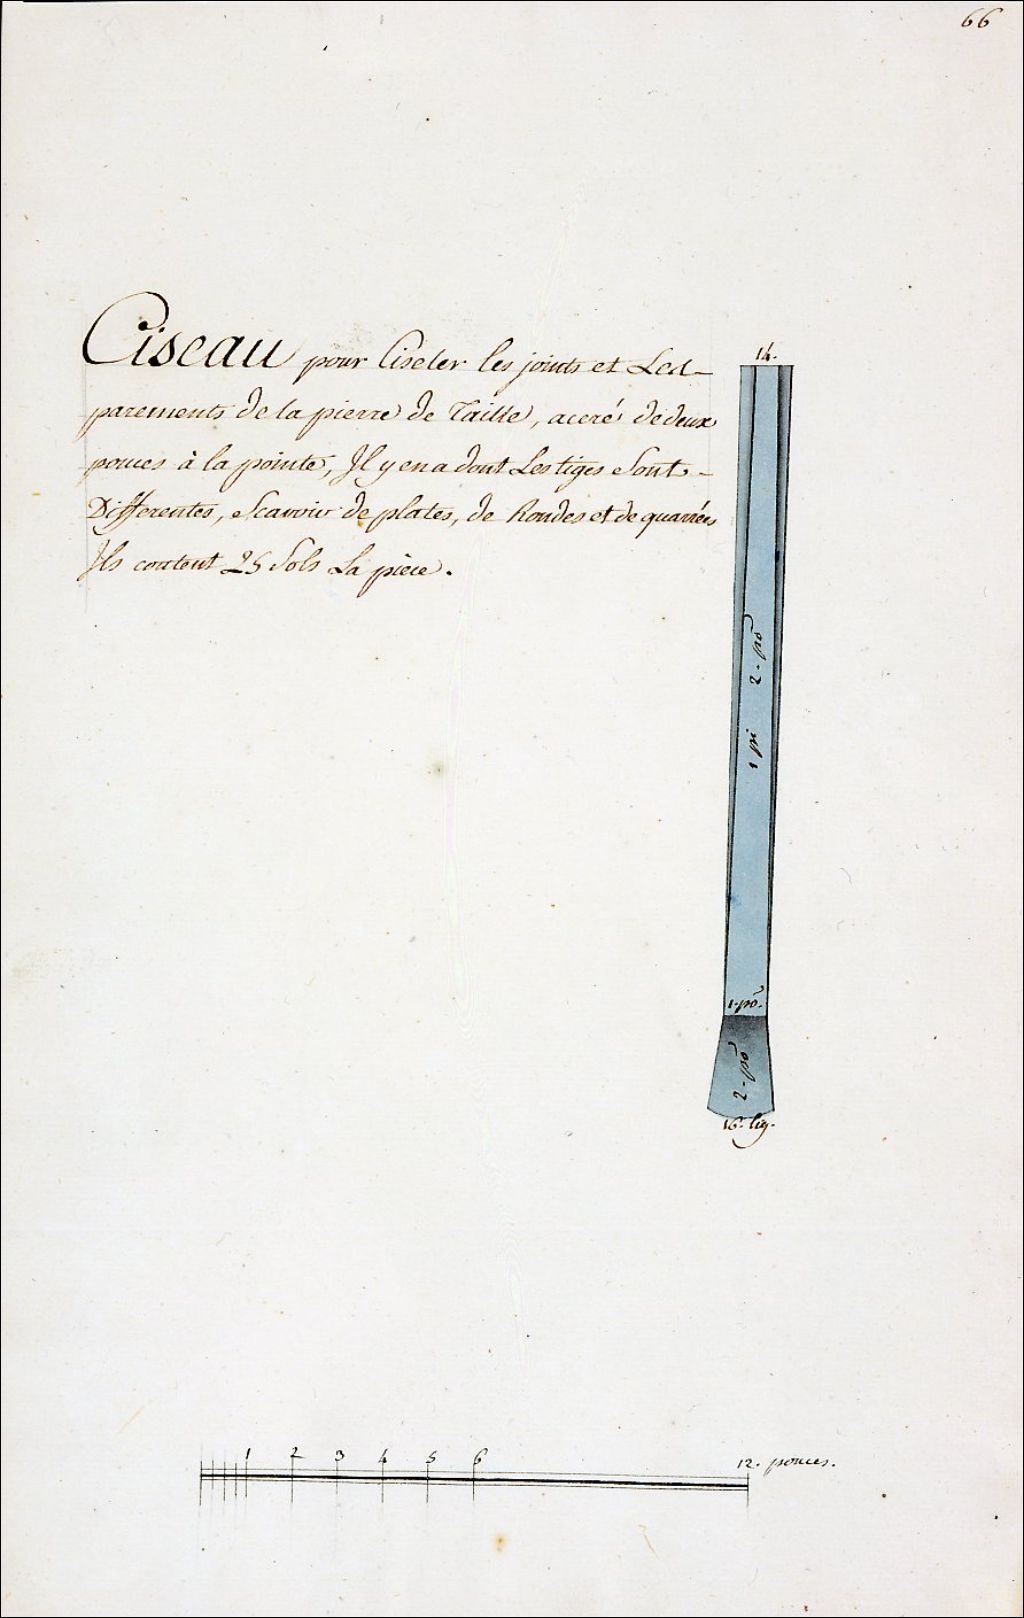 66
Ciseau pour Ciseler les joints et Les
parements de la pierre de Taille, aceré de deux
pouces à la pointe, Il y en a dont Les tiges Sont
Differentes, Scavoir de plates, de Rondes et de quarrées
Ils coutent 25 Sols La pièce.
14.
1 pi 2. po
1. po.
2. po
16. lig.
1 2 3 4 5 6 12. pouces.